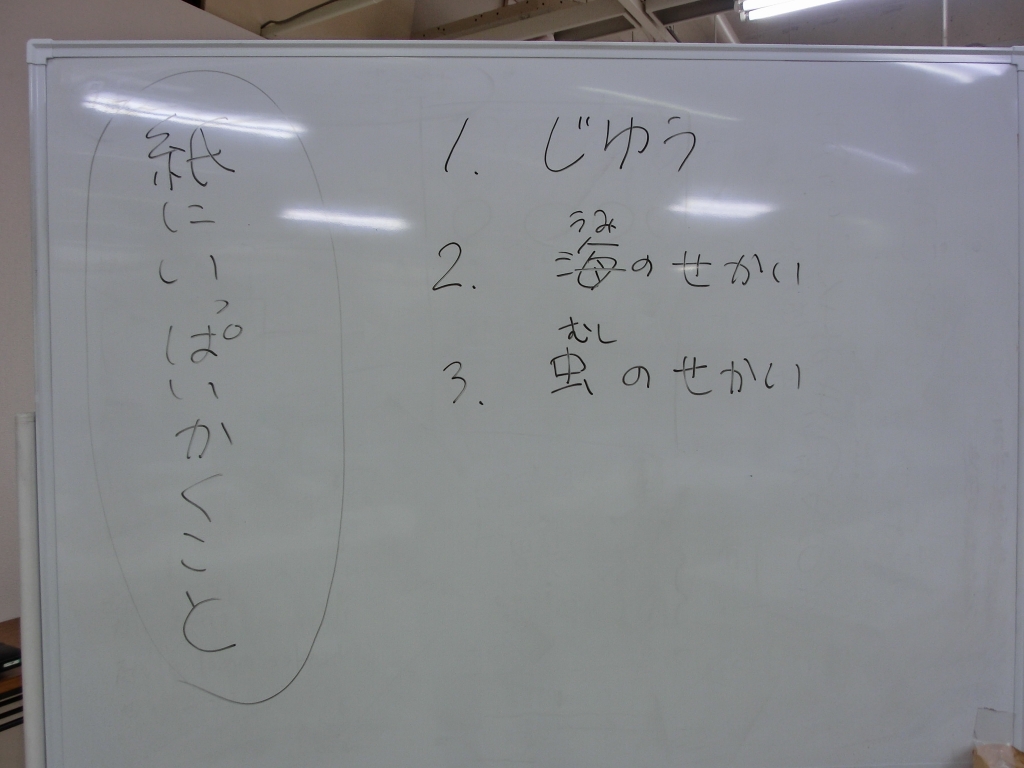 紙にいっぱいかくこと
1. じゆう
うみ
2. 海のせかい
むし
3. 虫のせかい